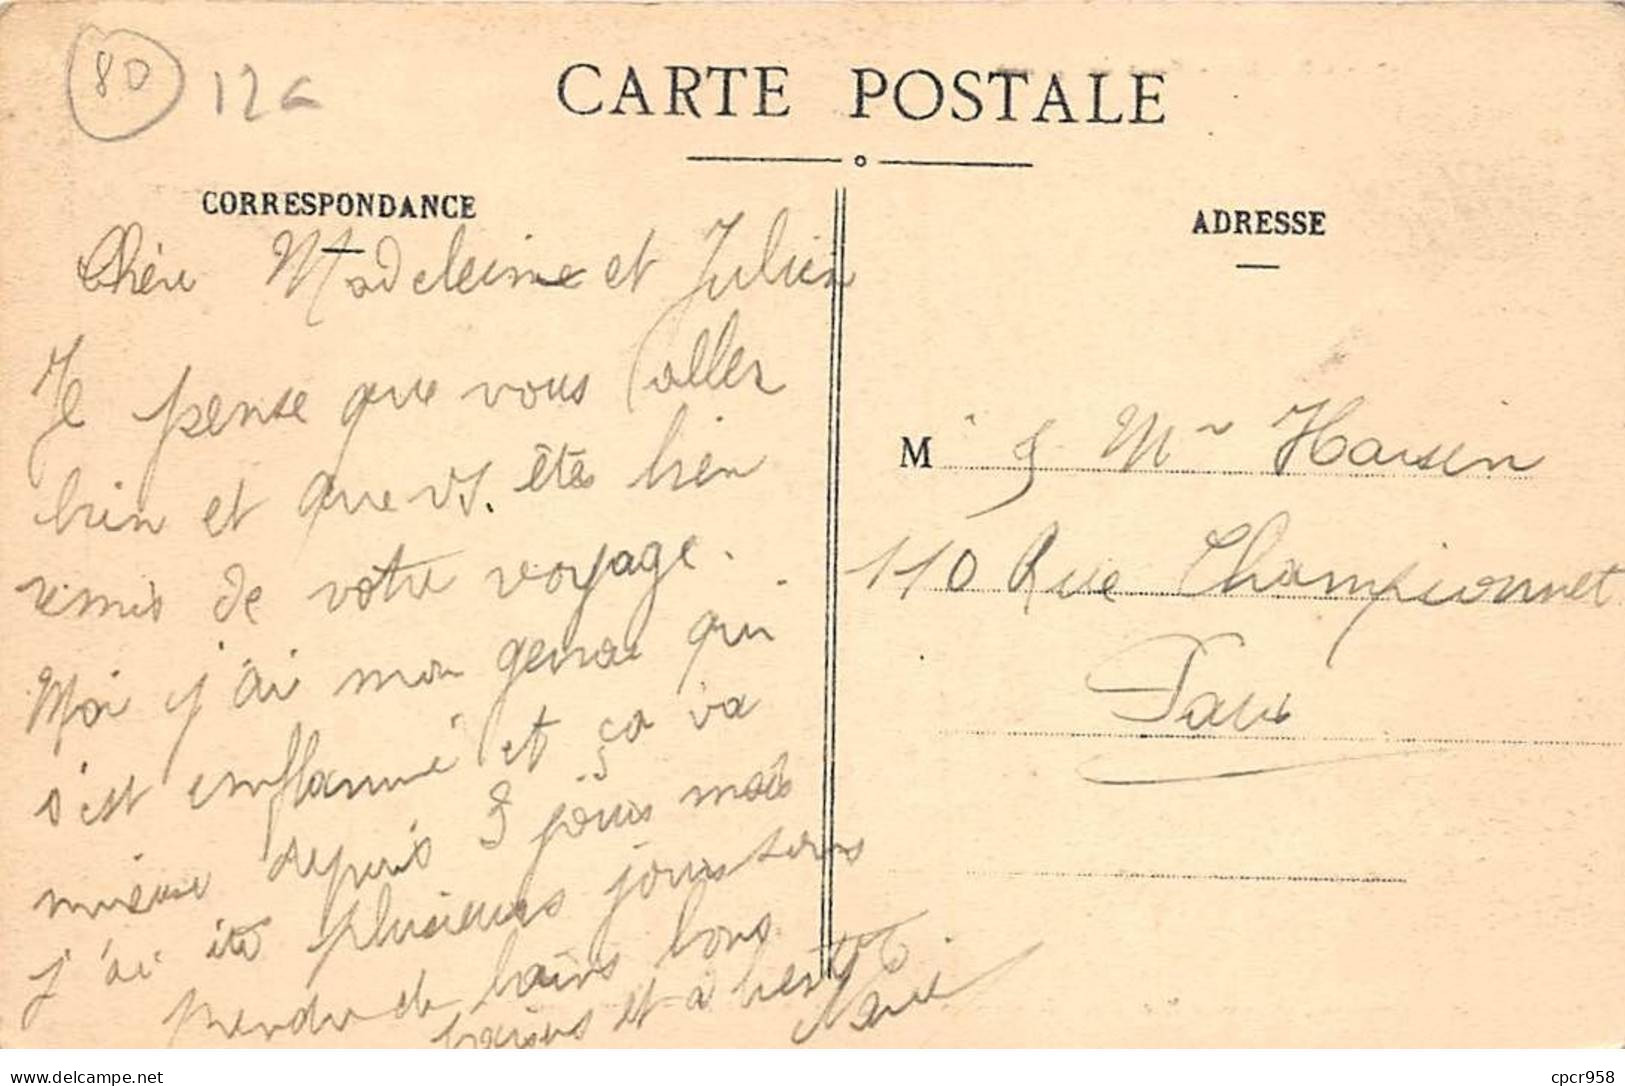 80 126
CARTE POSTALE
CORRESPONDANCE
ADRESSE
Chère Madeleine et Julien
Je pense que vous aller
bien et que vs. êtes bien
remis de votre voyage.
Moi j'ai mon genou qui
s'est enflammé et ça va
mieux depuis 3 jours mais
j'ai été plusieurs jours sans
prendre de bains bons
baisers et à bientôt
M et Mr
110 Rue Championnet
Paris
delcampe.net
cpcr958